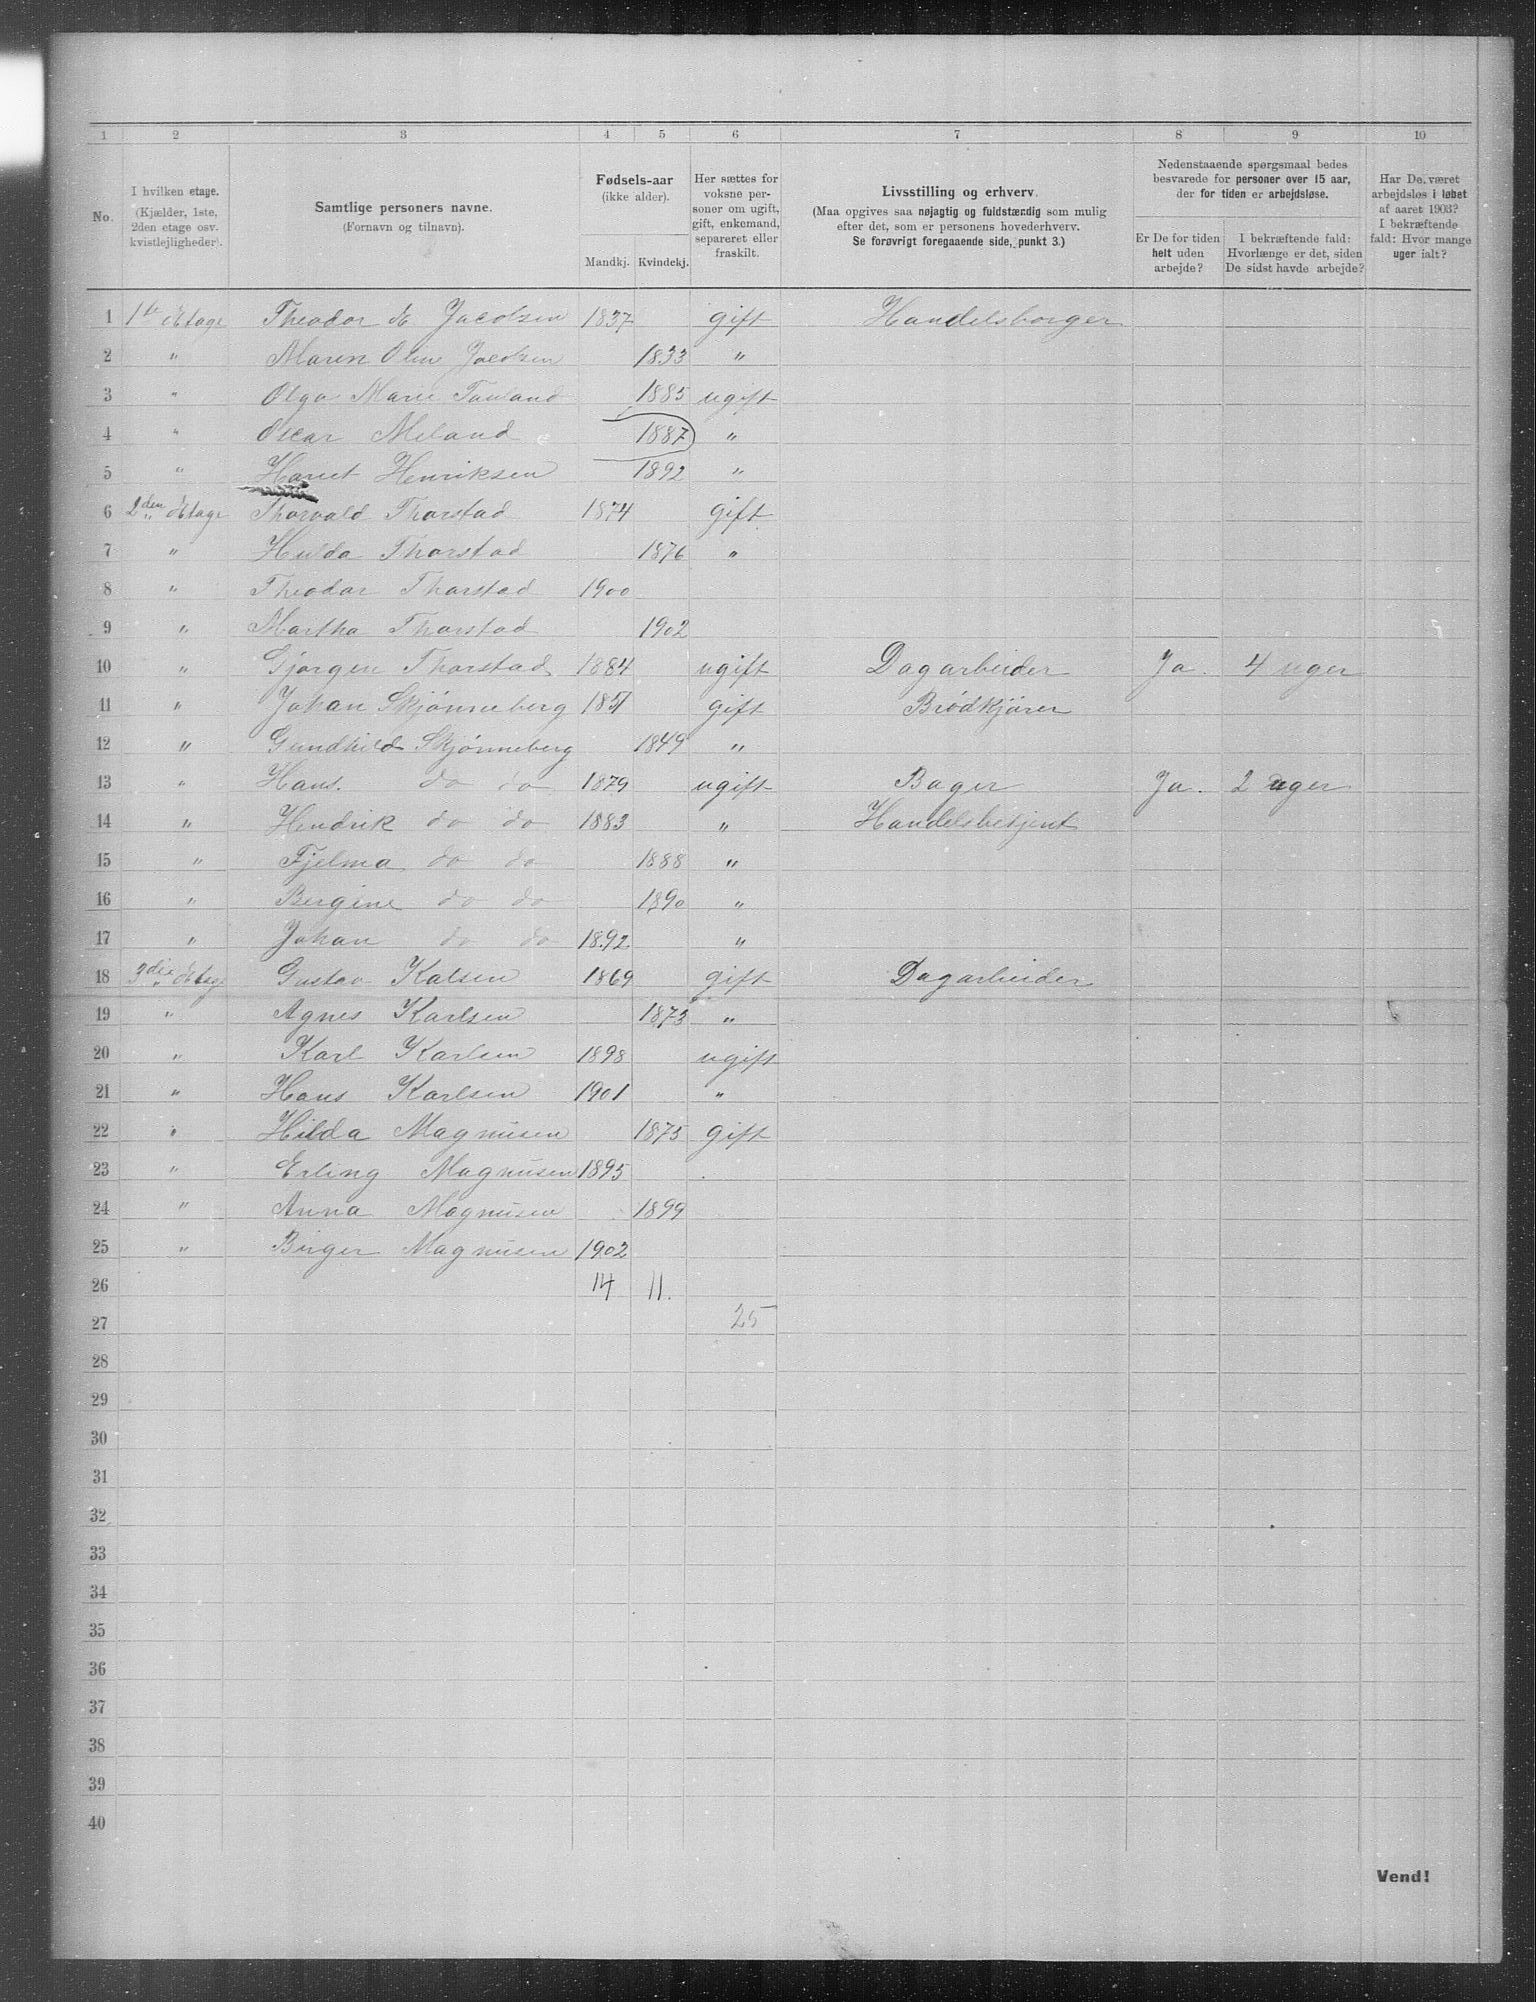 1 2 3 4 5 6 7 8 9 10
No.
I hvilken etage.
(Kjælder, 1ste,
2den etage osv.
kvistlejligheder).
Samtlige personers navne.
(Fornavn og tilnavn).
Fødsels-aar
(ikke alder).
Mandkj. Kvindekj.
Her sættes for
voksne per-
soner om ugift,
gift, enkemand,
separeret eller
fraskilt.
Livsstilling og erhverv.
(Maa opgives saa nøjagtig og fuldstændig som mulig
efter det, som er personens hovederhverv.
Se forøvrigt foregaaende side, punkt 3.)
Nedenstaaende spørgsmaal bedes
besvarede for personer over 15 aar,
der for tiden er arbejdsløse.
Er De for tiden
helt uden
arbejde?
I bekræftende fald:
Hvorlænge er det, siden
De sidst havde arbejde?
Har De været
arbejdsløs i løbet
af aaret 1903?
I bekræftende
fald: Hvor mange
uger ialt?
1 1ste Etage Theodor E Jacobsen 1837 gift Handelsborger
2 " Maren Oline Jacobsen 1833 "
3 " Olga Marie 1885 ugift
4 " Oscar Meland 1887 "
5 " Henriksen 1892 "
6 2den Etage Thorvald Thorstad 1874 gift
7 " Hulda Thorstad 1876 "
8 " Theodor Thorstad 1900
9 " Martha Thorstad 1902
10 " Gjørgen Thorstad 1884 ugift Dagarbeider Ja. 4 uger
11 " Johan Skjønneberg 1851 gift Brødkjører
12 " Gundhild Skjønneberg 1849 "
13 " Hans. do do 1879 ugift Bager Ja. 2 uger
14 " Hendrik do do 1883 " Handelsbetjent
15 " Fjelma do do 1888 "
16 " Bergine do do 1890 "
17 " Johan do do 1892 "
18 3die Etage Gustav Kalsen 1869 gift Dagarbeider
19 " Agnes Karlsen 1873 "
20 " Karl Karlsen 1898 ugift
21 " Hans Karlsen 1901 "
22 " Hilda Magnusen 1875 gift
23 " Erling Magnusen 1895
24 " Anna Magnusen 1899
25 " Birger Magnusen 1902
26 14 11.
27 25
28
29
30
31
32
33
34
35
36
37
38
39
40
Vend!